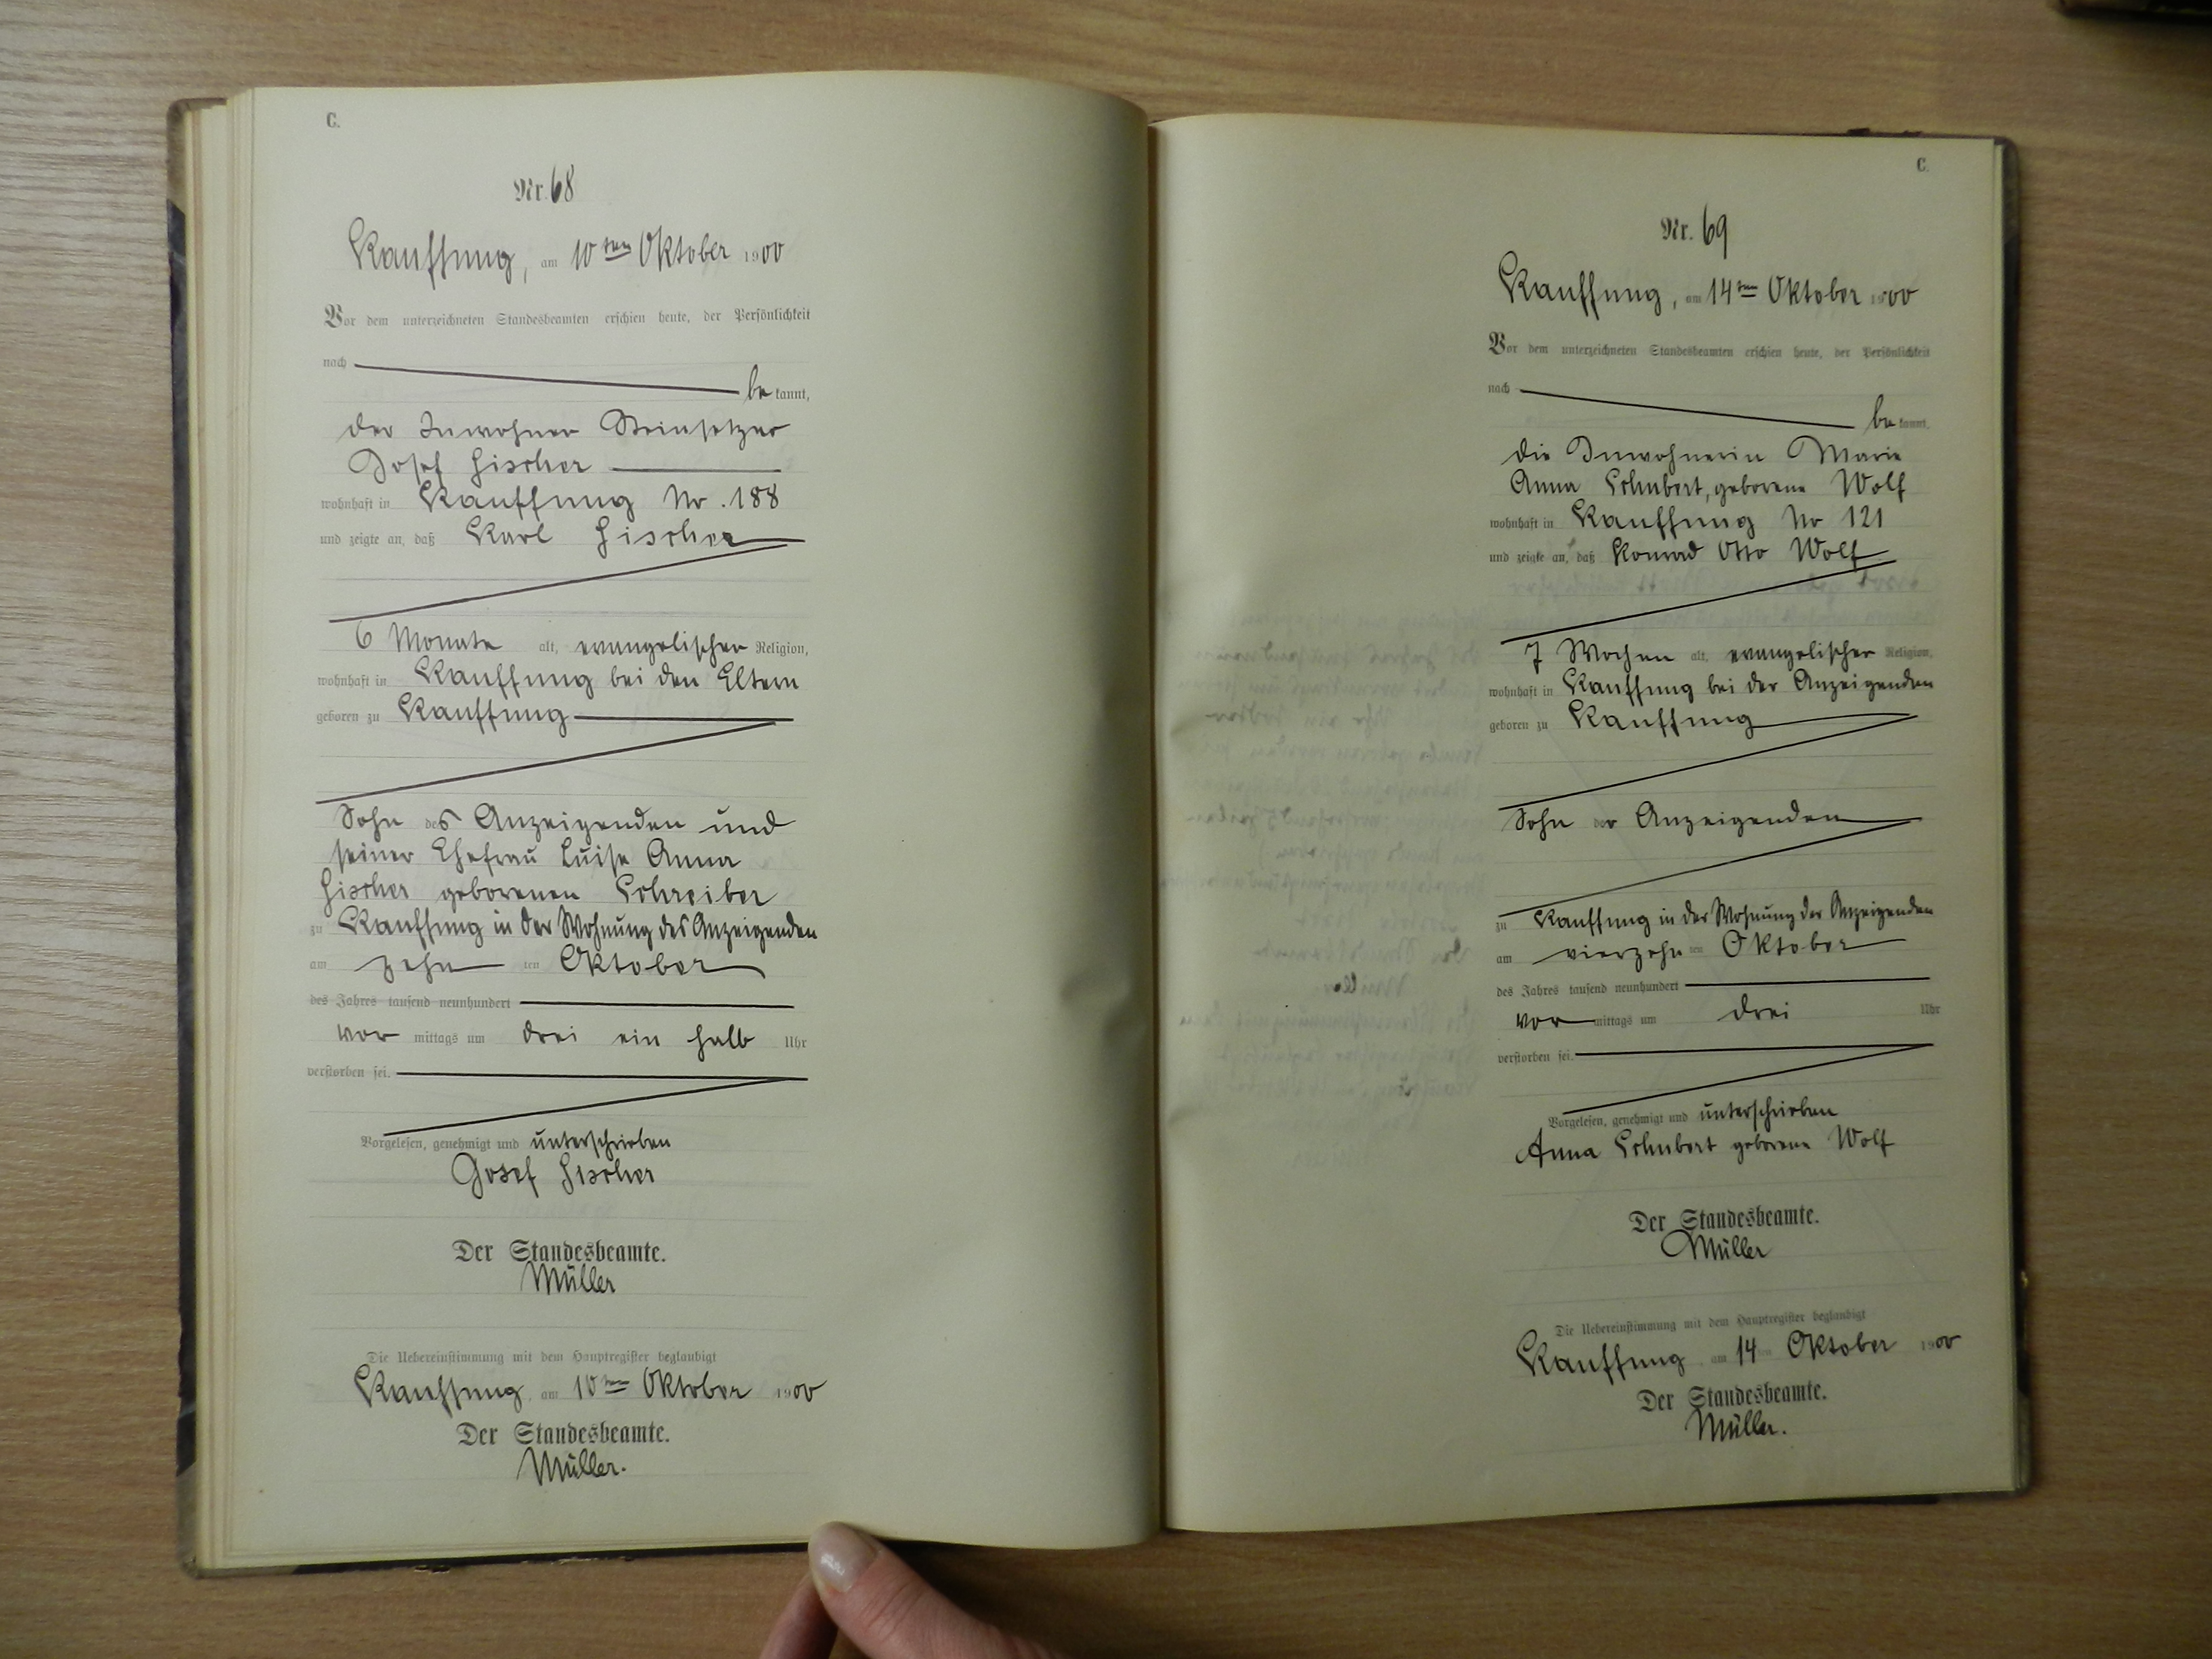 C.
Nr. 68
Kauffung, am 10ten Oktober 1900
Vor dem unterzeichneten Standesbeamten erschien heute, der Persönlichkeit
nach be kannt,
der Inwohner Steinsetzer
Josef Fischer
wohnhaft in Kauffung No. 188
und zeigte an, daß Karl Fischer
6 Monate alt, evangelischer Religion,
wohnhaft in Kauffung bei den Eltern
geboren zu Kauffung
Sohn des Anzeigenden und
seiner Ehefrau Luise Anna
Fischer geborenen Schreiber
zu Kauffung in der Wohnung des Anzeigenden
am zehn ten Oktober
des Jahres tausend neunhundert
vor mittags um drei ein halb Uhr
verstorben sei.
Vorgelesen, genehmigt und unterschrieben
Josef Fischer
Der Standesbeamte.
Müller
Die Uebereinstimmung mit dem Hauptregister beglaubigt
Kauffung, am 10ten Oktober 1900
Der Standesbeamte.
Müller.
C.
Nr. 69
Kauffung, am 14ten Oktober 1900
Vor dem unterzeichneten Standesbeamten erschien heute, der Persönlichkeit
nach be kannt,
die Inwohnerin Marie
Anna Schubert, geborene Wolf
wohnhaft in Kauffung No 121
und zeigte an, daß Konrad Otto Wolf
7 Wochen alt, evangelischer Religion,
wohnhaft in Kauffung bei der Anzeigenden
geboren zu Kauffung
Sohn der Anzeigenden
zu Kauffung in der Wohnung der Anzeigenden
am vierzehn ten Oktober
des Jahres tausend neunhundert
vor mittags um drei Uhr
verstorben sei.
Vorgelesen, genehmigt und unterschrieben
Anna Schubert geborene Wolf
Der Standesbeamte.
Müller
Die Uebereinstimmung mit dem Hauptregister beglaubigt
Kauffung, am 14ten Oktober 1900
Der Standesbeamte.
Müller.